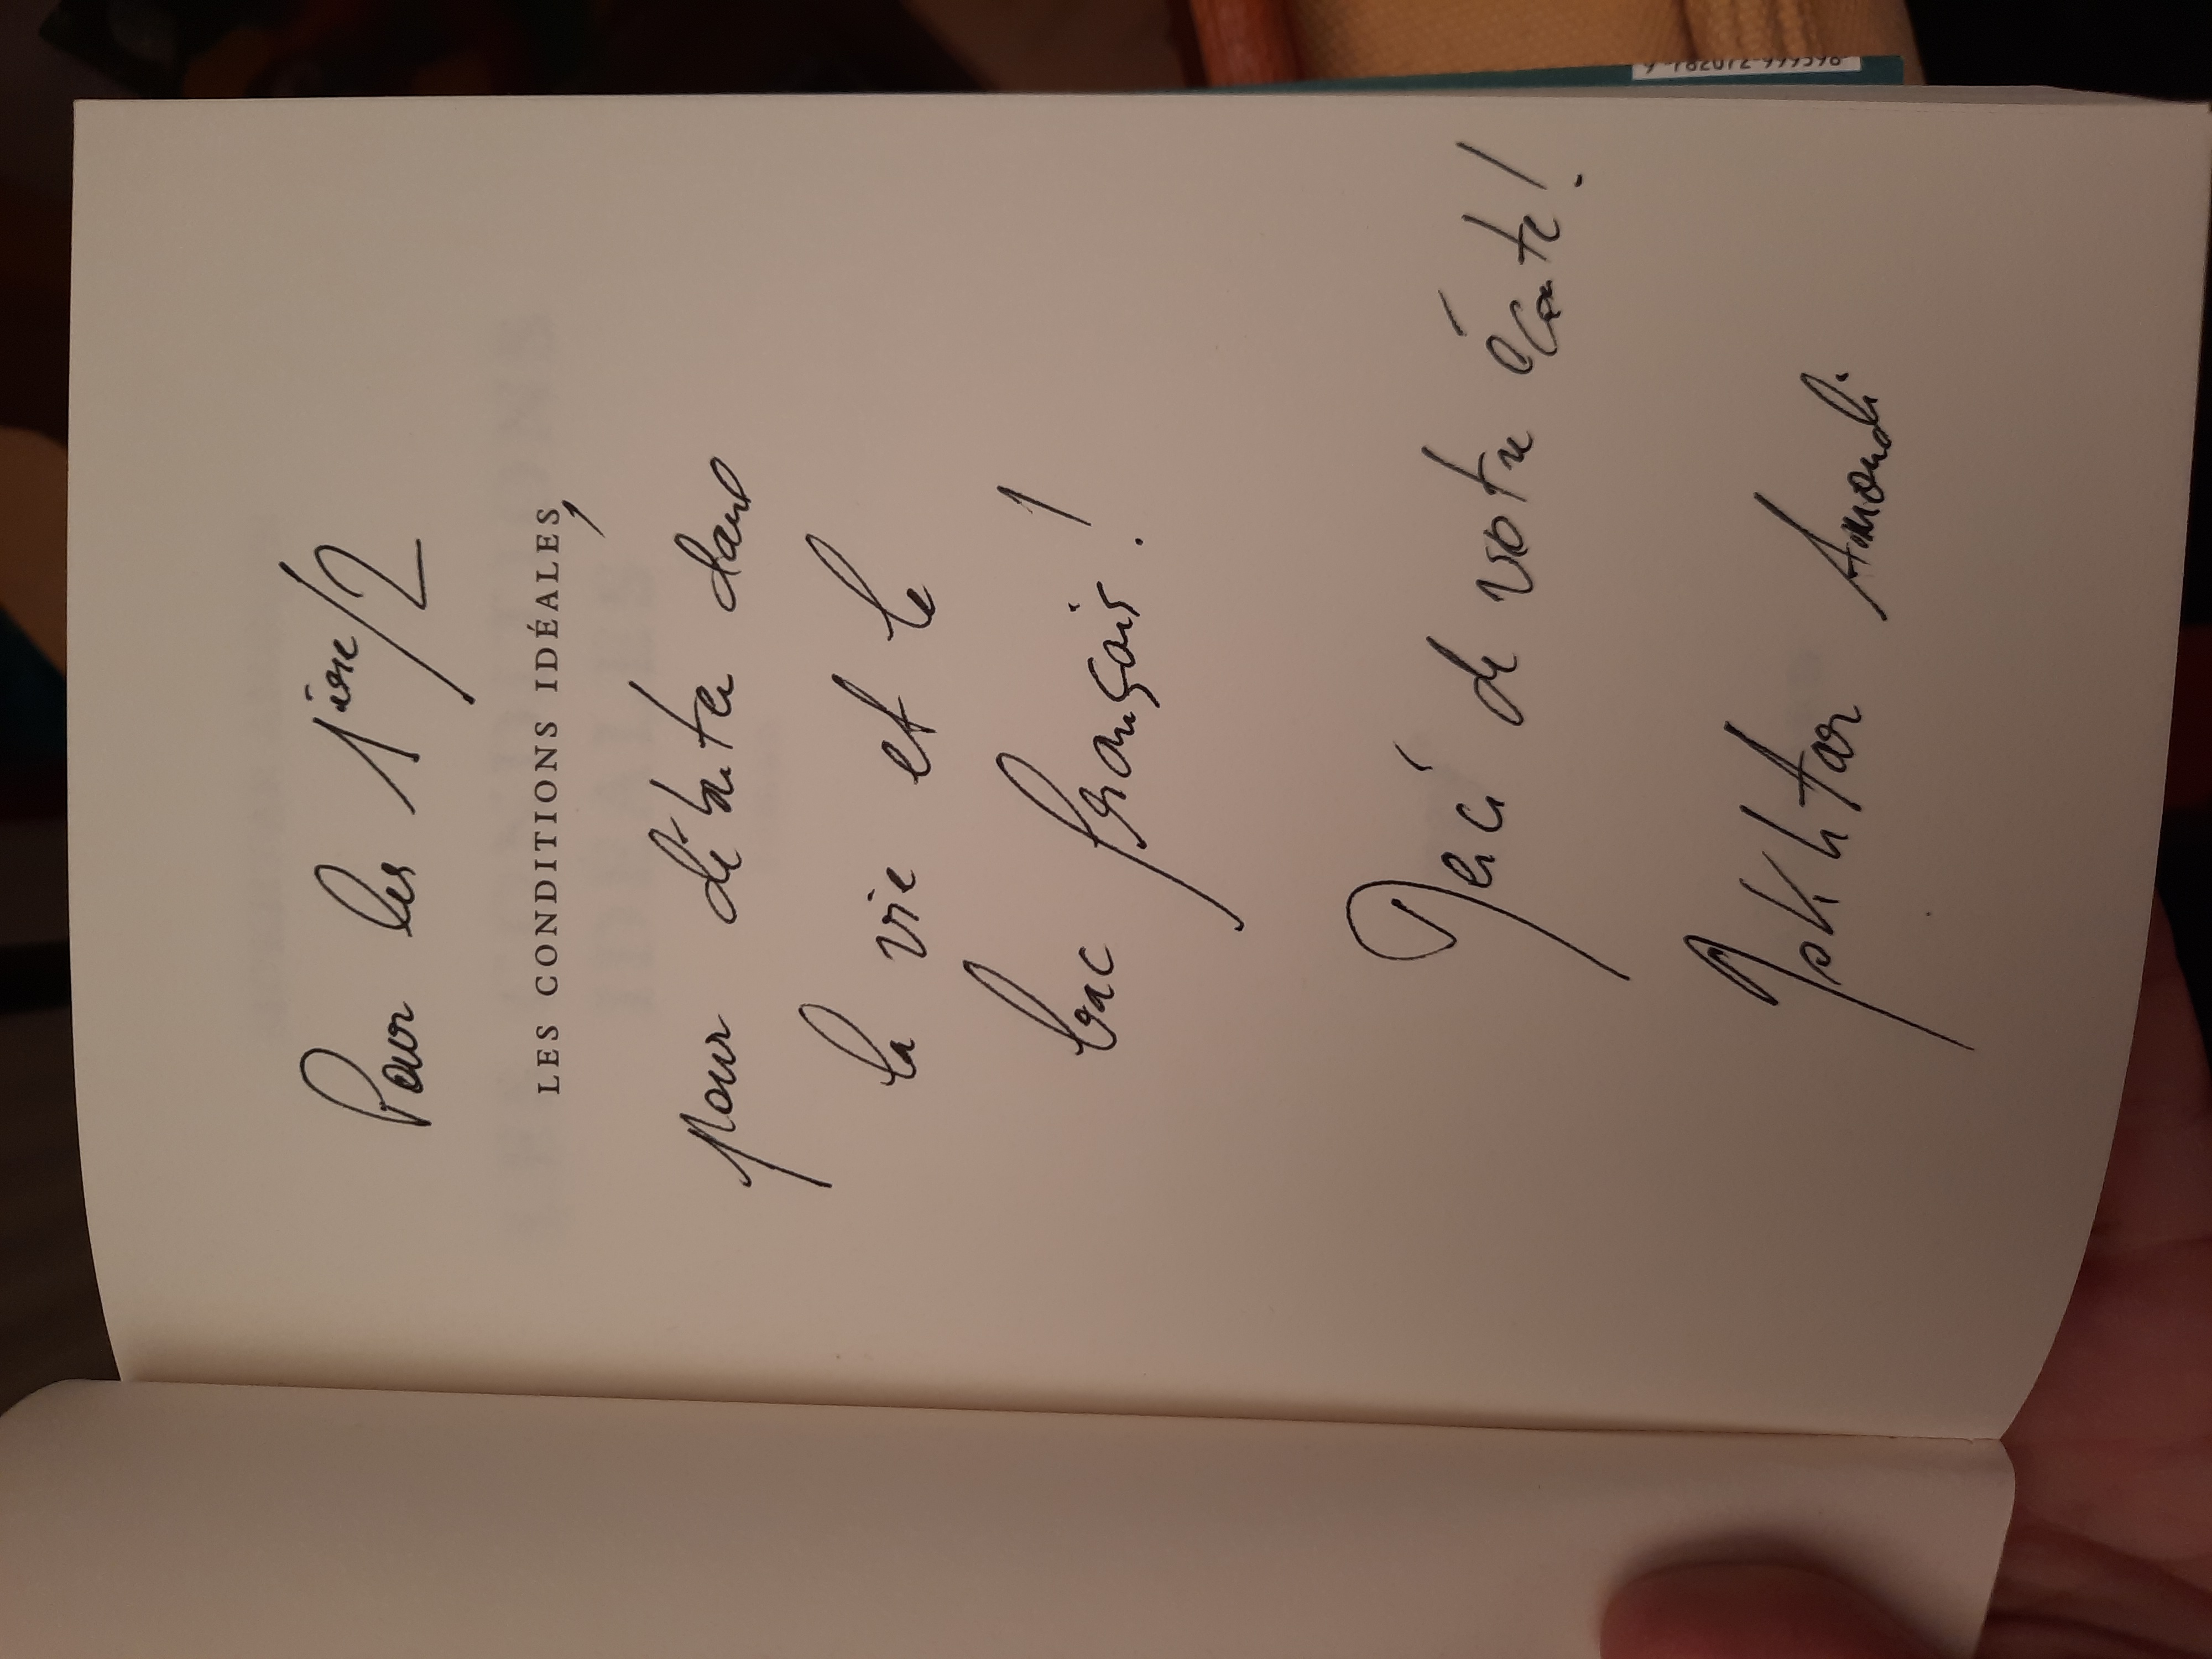 Pour les 1ère/2
LES CONDITIONS IDÉALES,
pour débuter dans
la vie et le
bac français !
Merci de votre écoute !
Mokhtar Amoudi
9 782072 999598